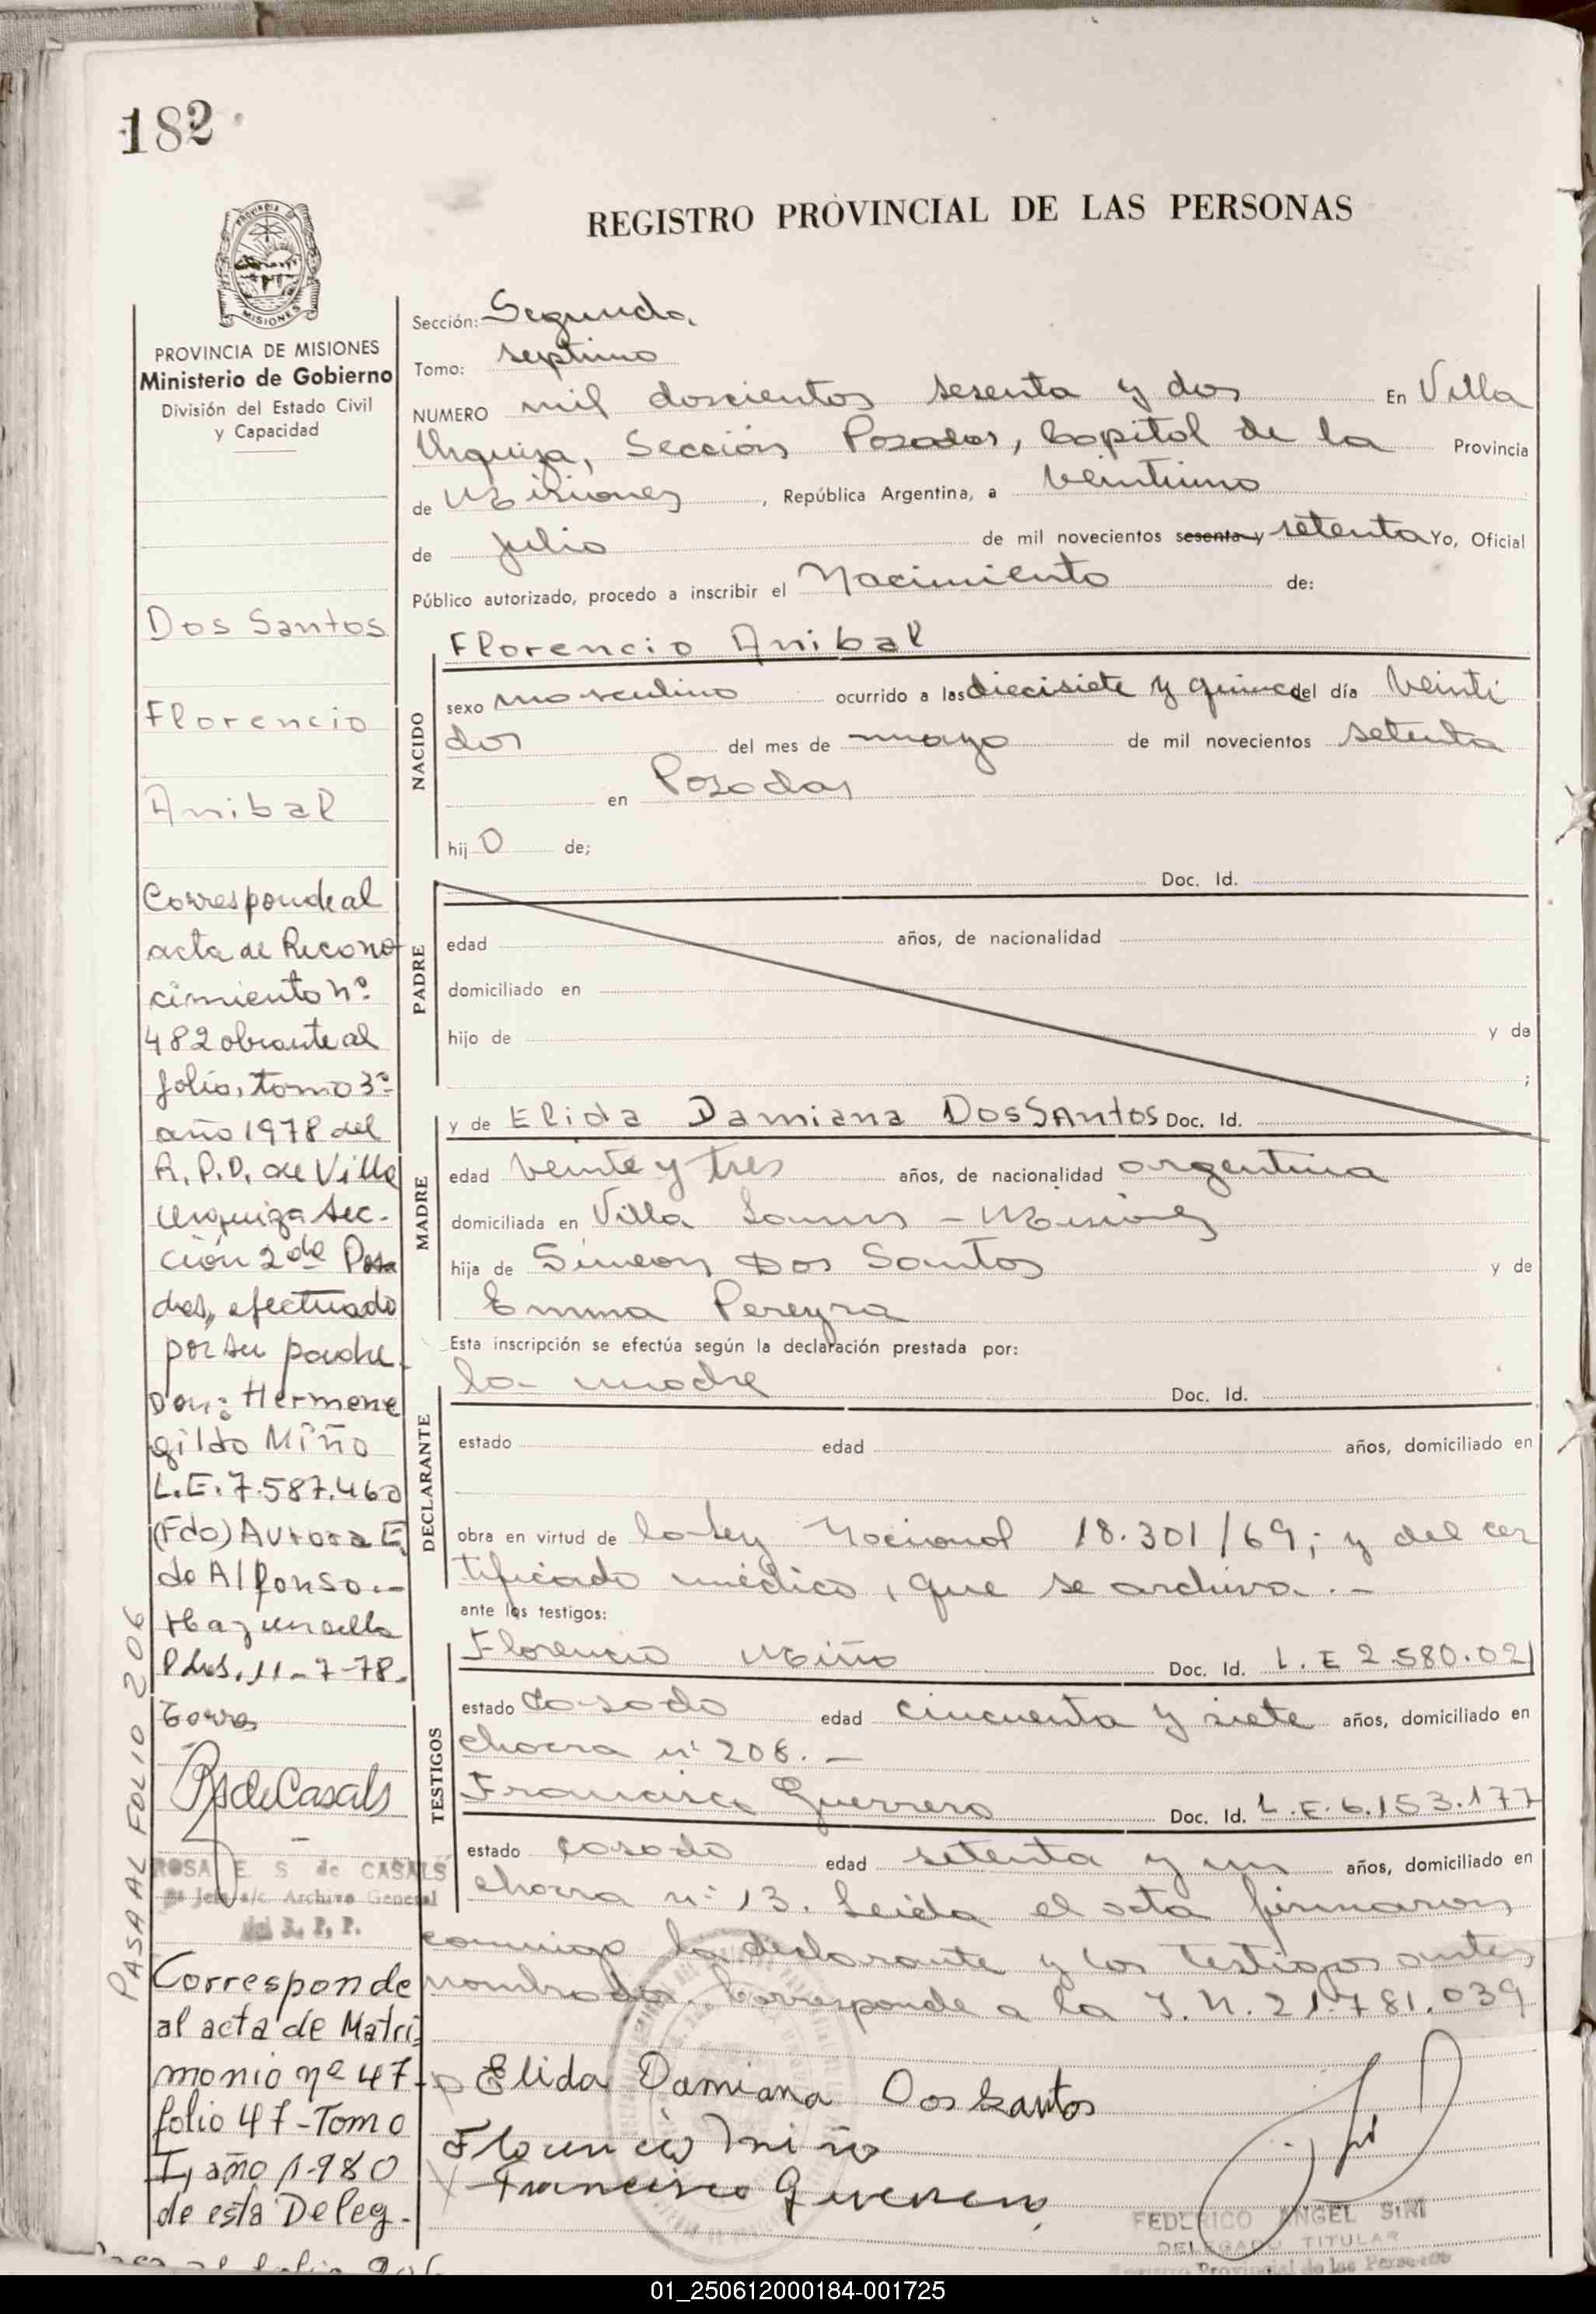 182
REGISTRO PROVINCIAL DE LAS PERSONAS
MISIONES
PROVINCIA DE MISIONES
Ministerio de Gobierno
División del Estado Civil
y Capacidad
Dos Santos
Florencio
Anibal
Corresponde al
acta de Recono
cimiento nº
482 obrante al
folio, tomo 3º
año 1978 del
R.P.P. de Villa
Urquiza Sec-
ción 2da Posa
das, efectuado
por su padre
Don: Hermene
gildo Miño
L.E. 7.587.460
(Fdo) Aurora E.
de Alfonso.-
Hay un sello
Pdas. 11-7-78.
RsdeCasals
ROSA E. S. de CASALS
Jefe a/c. Archivo General
del R. P. P.
Corresponde
al acta de Matri
monio nº 47-
folio 47-Tomo
I, año 1980
de esta Deleg-
PASA AL FOLIO 206
Sección: Segunda
Tomo: septimo
NUMERO mil doscientos sesenta y dos En Villa
Urquiza, Sección Posadas, Capital de la Provincia
de Misiones, República Argentina, a veintiuno
de julio de mil novecientos sesenta y setenta Yo, Oficial
Público autorizado, procedo a inscribir el Nacimiento de:
NACIDO
Florencio Anibal
sexo masculino ocurrido a las diecisiete y quince del día veinti
dos del mes de mayo de mil novecientos setenta
en Posadas
hijo de;
PADRE
Doc. Id.
edad años, de nacionalidad
domiciliado en
hijo de y de
;
MADRE
y de Elida Damiana DosSAntos Doc. Id.
edad veinte y tres años, de nacionalidad argentina
domiciliada en Villa Lanus - Misiones
hija de Simeon Dos Santos y de
Emma Pereyra
Esta inscripción se efectúa según la declaración prestada por:
DECLARANTE
la madre Doc. Id.
estado edad años, domiciliado en
obra en virtud de la Ley Nacional 18.301/69; y del cer
tificado médico, que se archiva.-
ante los testigos:
TESTIGOS
Florencio Miño Doc. Id. L.E 2.580.021
estado casado edad cincuenta y siete años, domiciliado en
chacra nº 208.-
Francisco Guerrero Doc. Id. L.E. 6.153.177
estado casado edad setenta y un años, domiciliado en
chacra nº 13. Leida el acta firmaron
conmigo la declarante y los testigos antes
nombrados. Corresponde a la I.N. 21.781.039
Elida Damiana Dos Santos
Florencio Miño
Francisco Guerrero
FEDERICO ANGEL SINI
DELEGADO TITULAR
Registro Provincial de las Personas
01_250612000184-001725